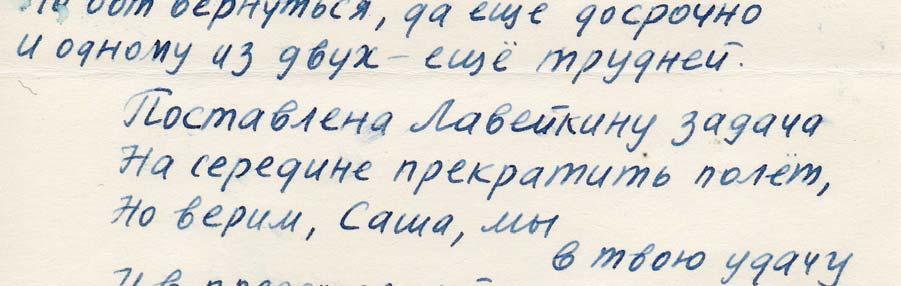 вот вернуться, да еще досрочно
и одному из двух – ещё трудней.
Поставлена Лавейкину задача
На середине прекратить полёт,
Но верим, Саша, мы
в твою удачу